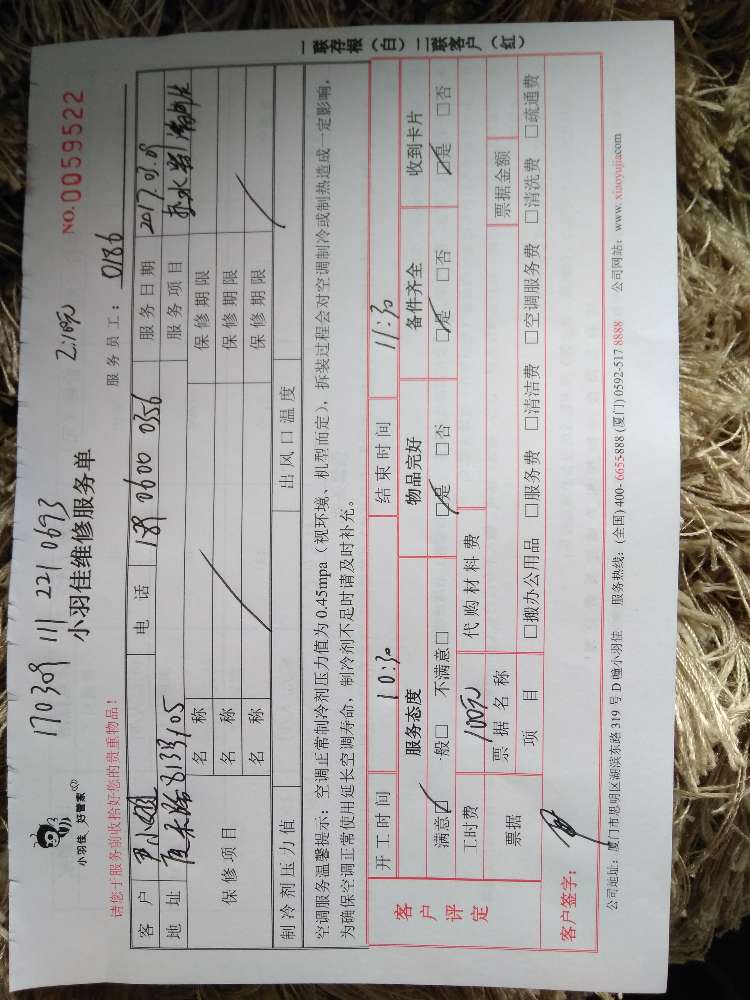 170309 111 221 0693
小羽佳 好管家
小羽佳维修服务单
NO.0059522
请您于服务前收拾好您的贵重物品!
服务员工: 0186
客户 电话 189 0600 0356 服务日期 2017.03.09
地址 服务项目
保修项目 名称 保修期限
名称 保修期限
名称 保修期限
制冷剂压力值 出风口温度
空调服务温馨提示:空调正常制冷剂压力值为0.45mpa(视环境、机型而定),拆装过程会对空调制冷或制热造成一定影响,
为确保空调正常使用延长空调寿命,制冷剂不足时请及时补充。
客户评定
开工时间 10:30 结束时间 11:30
服务态度 物品完好 备件齐全 收到卡片
满意☑ 一般□ 不满意□ ☑是 □否 ☑是 □否 ☑是 □否
工时费 100元 代购材料费
票据 票据名称 票据金额
项目 □搬办公用品 □服务费 □清洁费 □空调服务费 □清洗费 □疏通费
客户签字:
公司地址:厦门市思明区湖滨东路319号D幢小羽佳 服务热线:(全国)400-6655-888 (厦门) 0592-517 8888 公司网站:www.xiaoyujia.com
一联存根(白)二联客户(红)